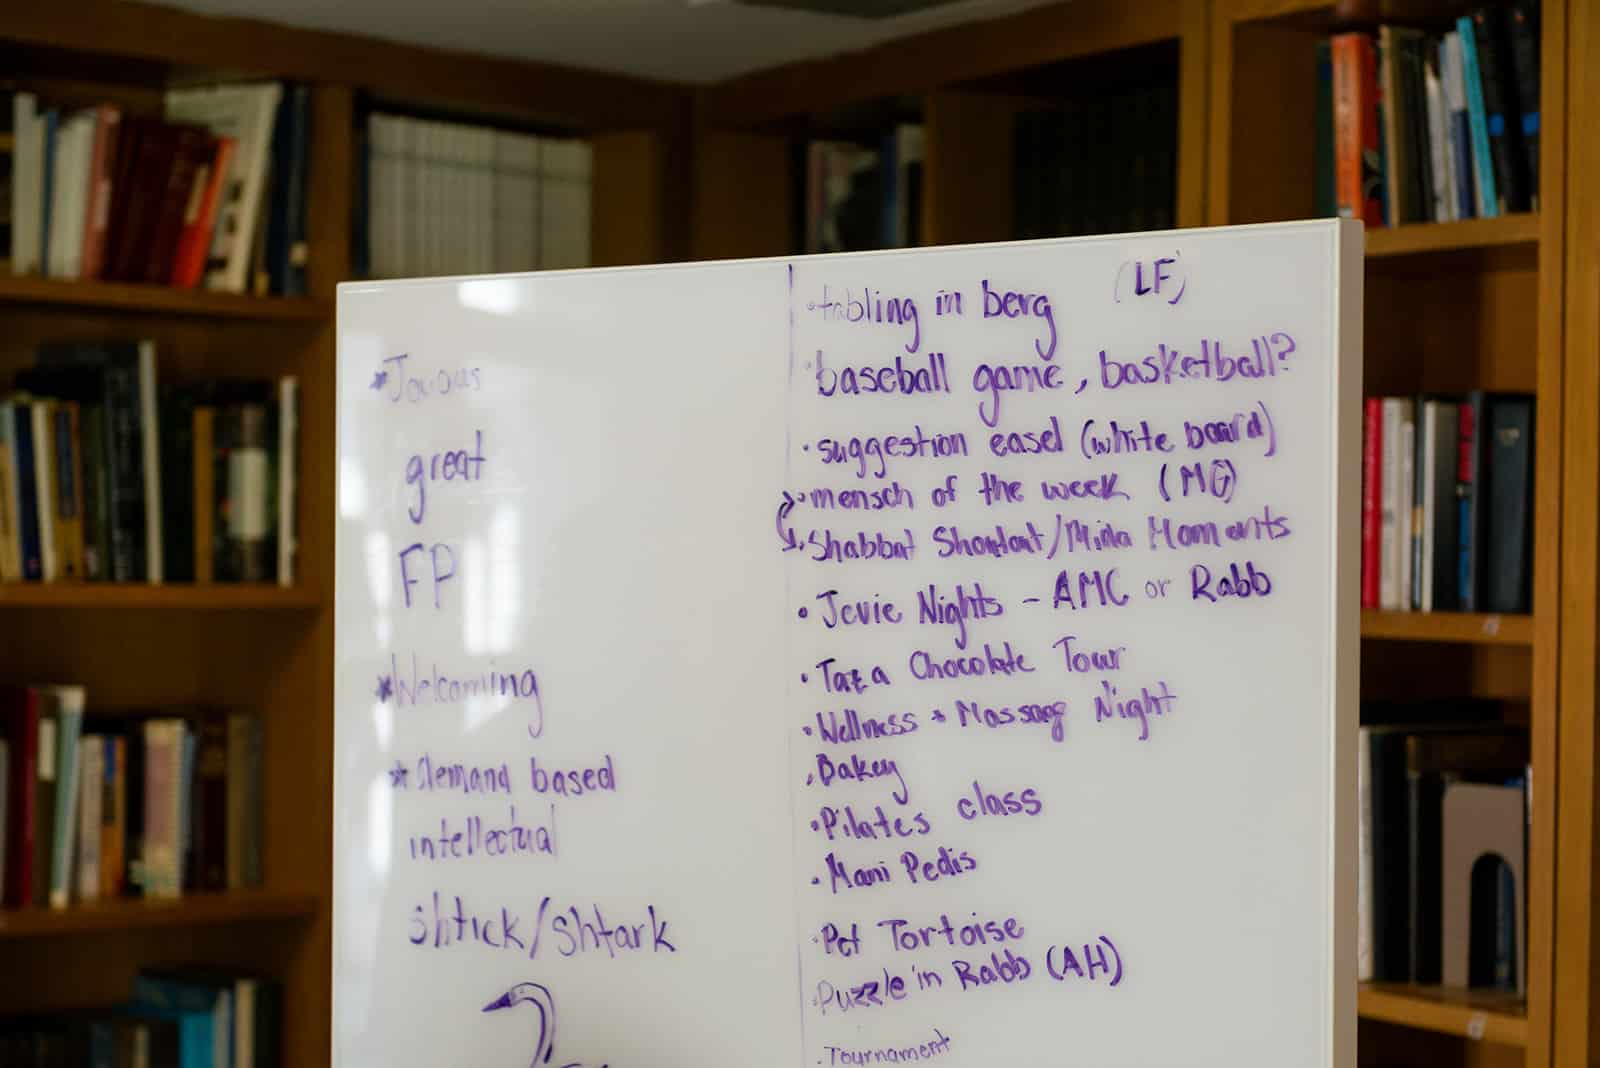 *Joyous
great
FP
*Welcoming
*demand based
intellectual
shtick/shtark
•tabling in berg (LF)
•baseball game, basketball?
•suggestion easel (white board)
•mensch of the week (MG)
•Shabbat Shoutout/Mida Moments
•Jevie Nights - AMC or Rabb
•Taza Chocolate Tour
•Wellness + Massage Night
•Bakey
•Pilates class
•Mani Pedis
•Pet Tortoise
•Puzzle in Rabb (AH)
•Tournament